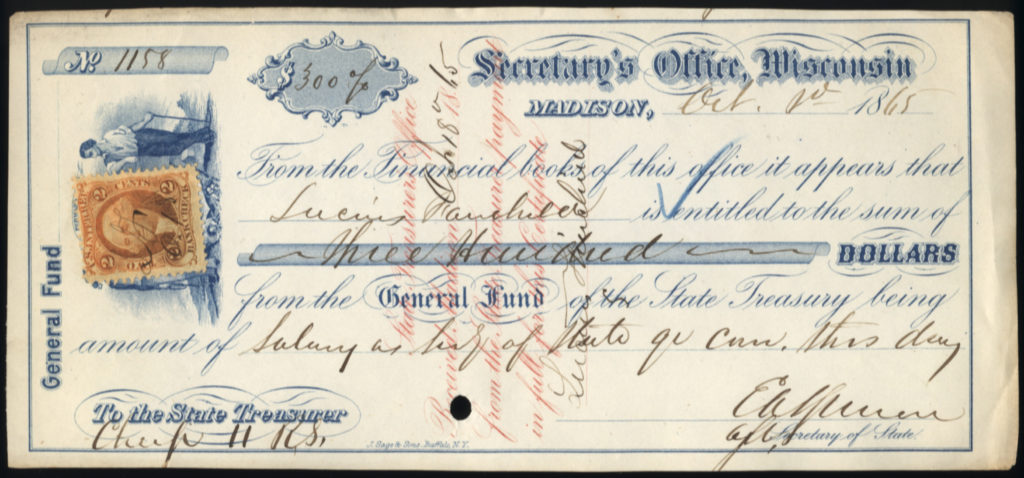 No. 1158
$300 %
Secretary's Office, Wisconsin
MADISON, Oct. 1865
From the Financial books of this office it appears that
Lucius Fairchild is entitled to the sum of
Three Hundred DOLLARS
from the General Fund of the State Treasury being
amount of Salary as Secy of State qr com. this day
General Fund
To the State Treasurer
Secretary of State.
J. Sage & Sons, Buffalo, N.Y.
2 CENTS 2
BANK CHECK
State Treasurer's Office
1865
Received
from the Treasurer payment
in full of this Certificate
Lucius Fairchild